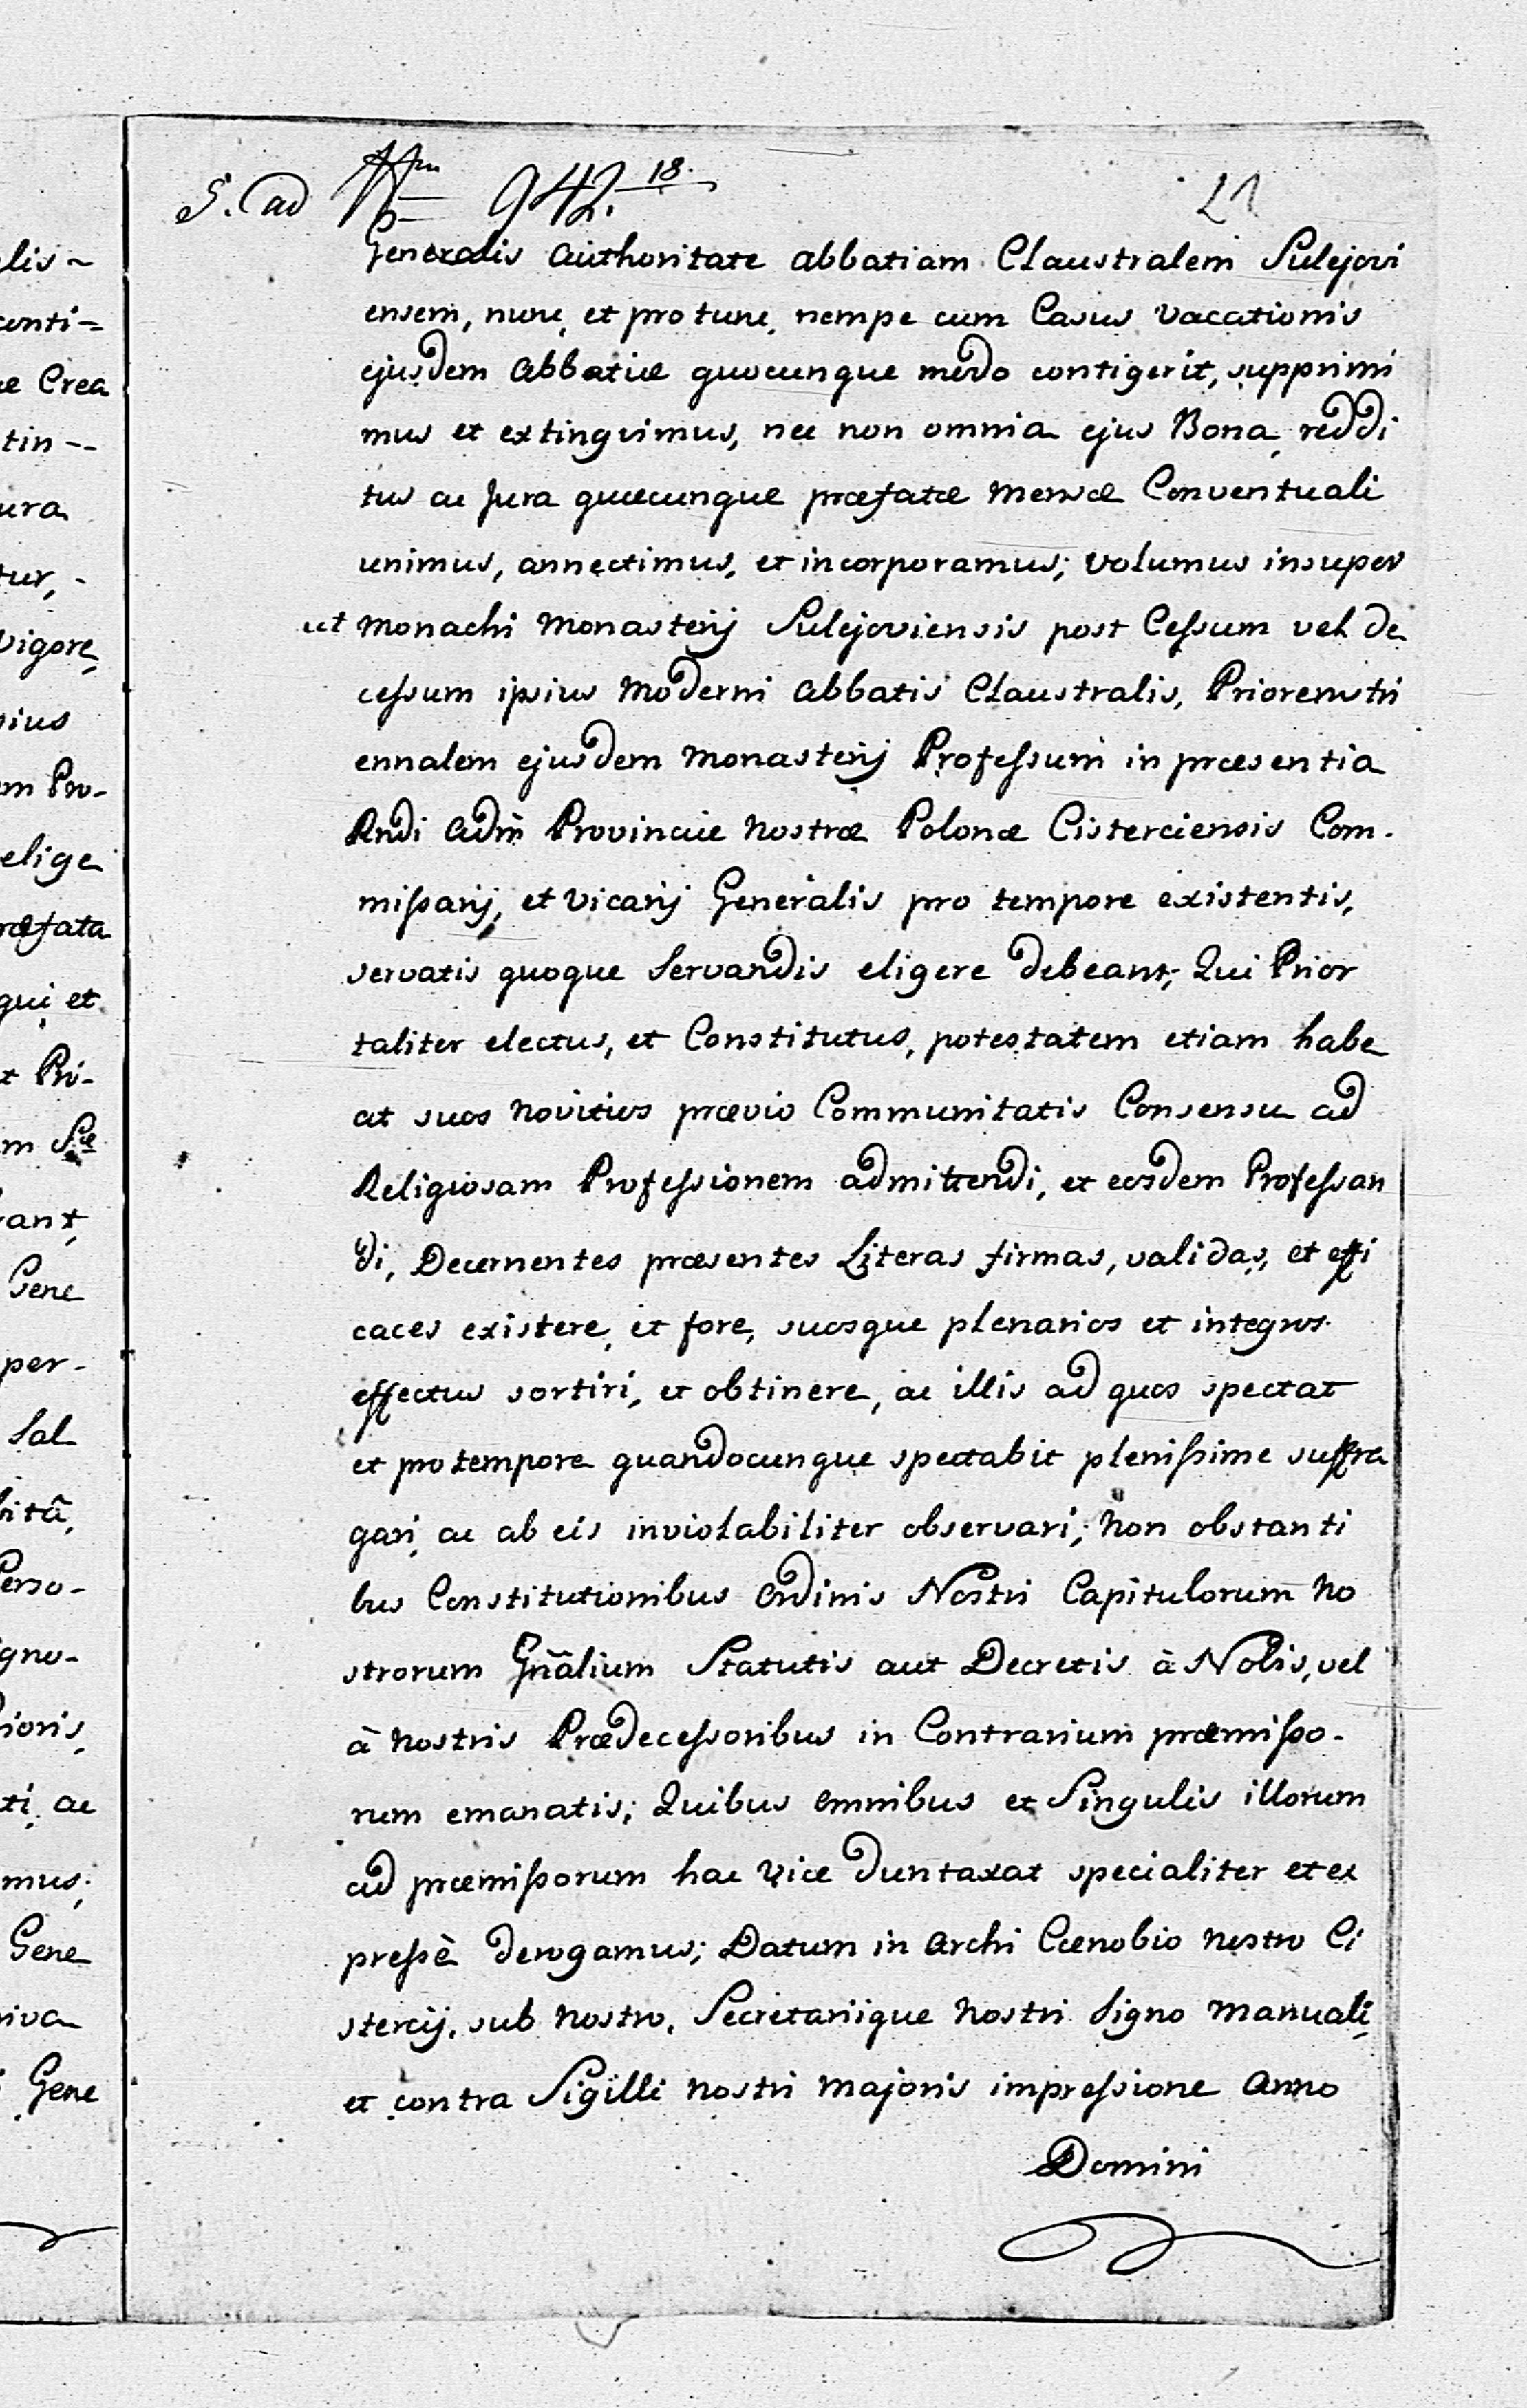 S. ad Nrm 942. 18. 21
Generalis authoritate abbatiam Claustralem Sulejovi
ensem, nunc, et pro tunc, nempe cum Casus vacationis
ejusdem abbatiæ quocunque modo contigerit, supprimi
mus et extinguimus, nec non omnia ejus Bona, reddi
tus ac Jura quæcunque præfatæ Mensæ Conventuali
unimus, annectimus, et incorporamus; volumus insuper
ut Monachi Monasterij Sulejoviensis post Cessum vel de
cessum ipsius Moderni abbatis Claustralis, Priorem tri
ennalem ejusdem Monasterij Professum in præsentia
Rndi adm̃ Provinciæ Nostræ Polonæ Cisterciensis Com-
missarij, et vicarij Generalis pro tempore existentis,
servatis quoque Servandis eligere debeant; Qui Prior
taliter electus, et Constitutus, potestatem etiam habe
at suos Novitios prævio Communitatis Consensu ad
Religiosam Professionem admittendi, et eosdem Professan
di, Decernentes præsentes Literas firmas, validas, et effi
caces existere, et fore, suosque plenarios et integros
effectus sortiri, et obtinere, ac illis ad quos spectat
et pro tempore quandocunque spectabit plenissime suffra
gari, ac ab eis inviolabiliter observari; Non obstanti
bus Constitutionibus Ordinis Nostri Capitulorum No
strorum Gñâlium Statutis aut Decretis à Nobis, vel
à Nostris Prædecessoribus in Contrarium præmisso-
rum emanatis; Quibus omnibus et Singulis illorum
ad præmissorum hac vice duntaxat specialiter et ex
pressè derogamus; Datum in Archi Cœnobio nostro Ci
stercij, sub Nostro, Secretariique Nostri Signo Manuali,
et contra Sigilli nostri Majoris impressione Anno
Domini